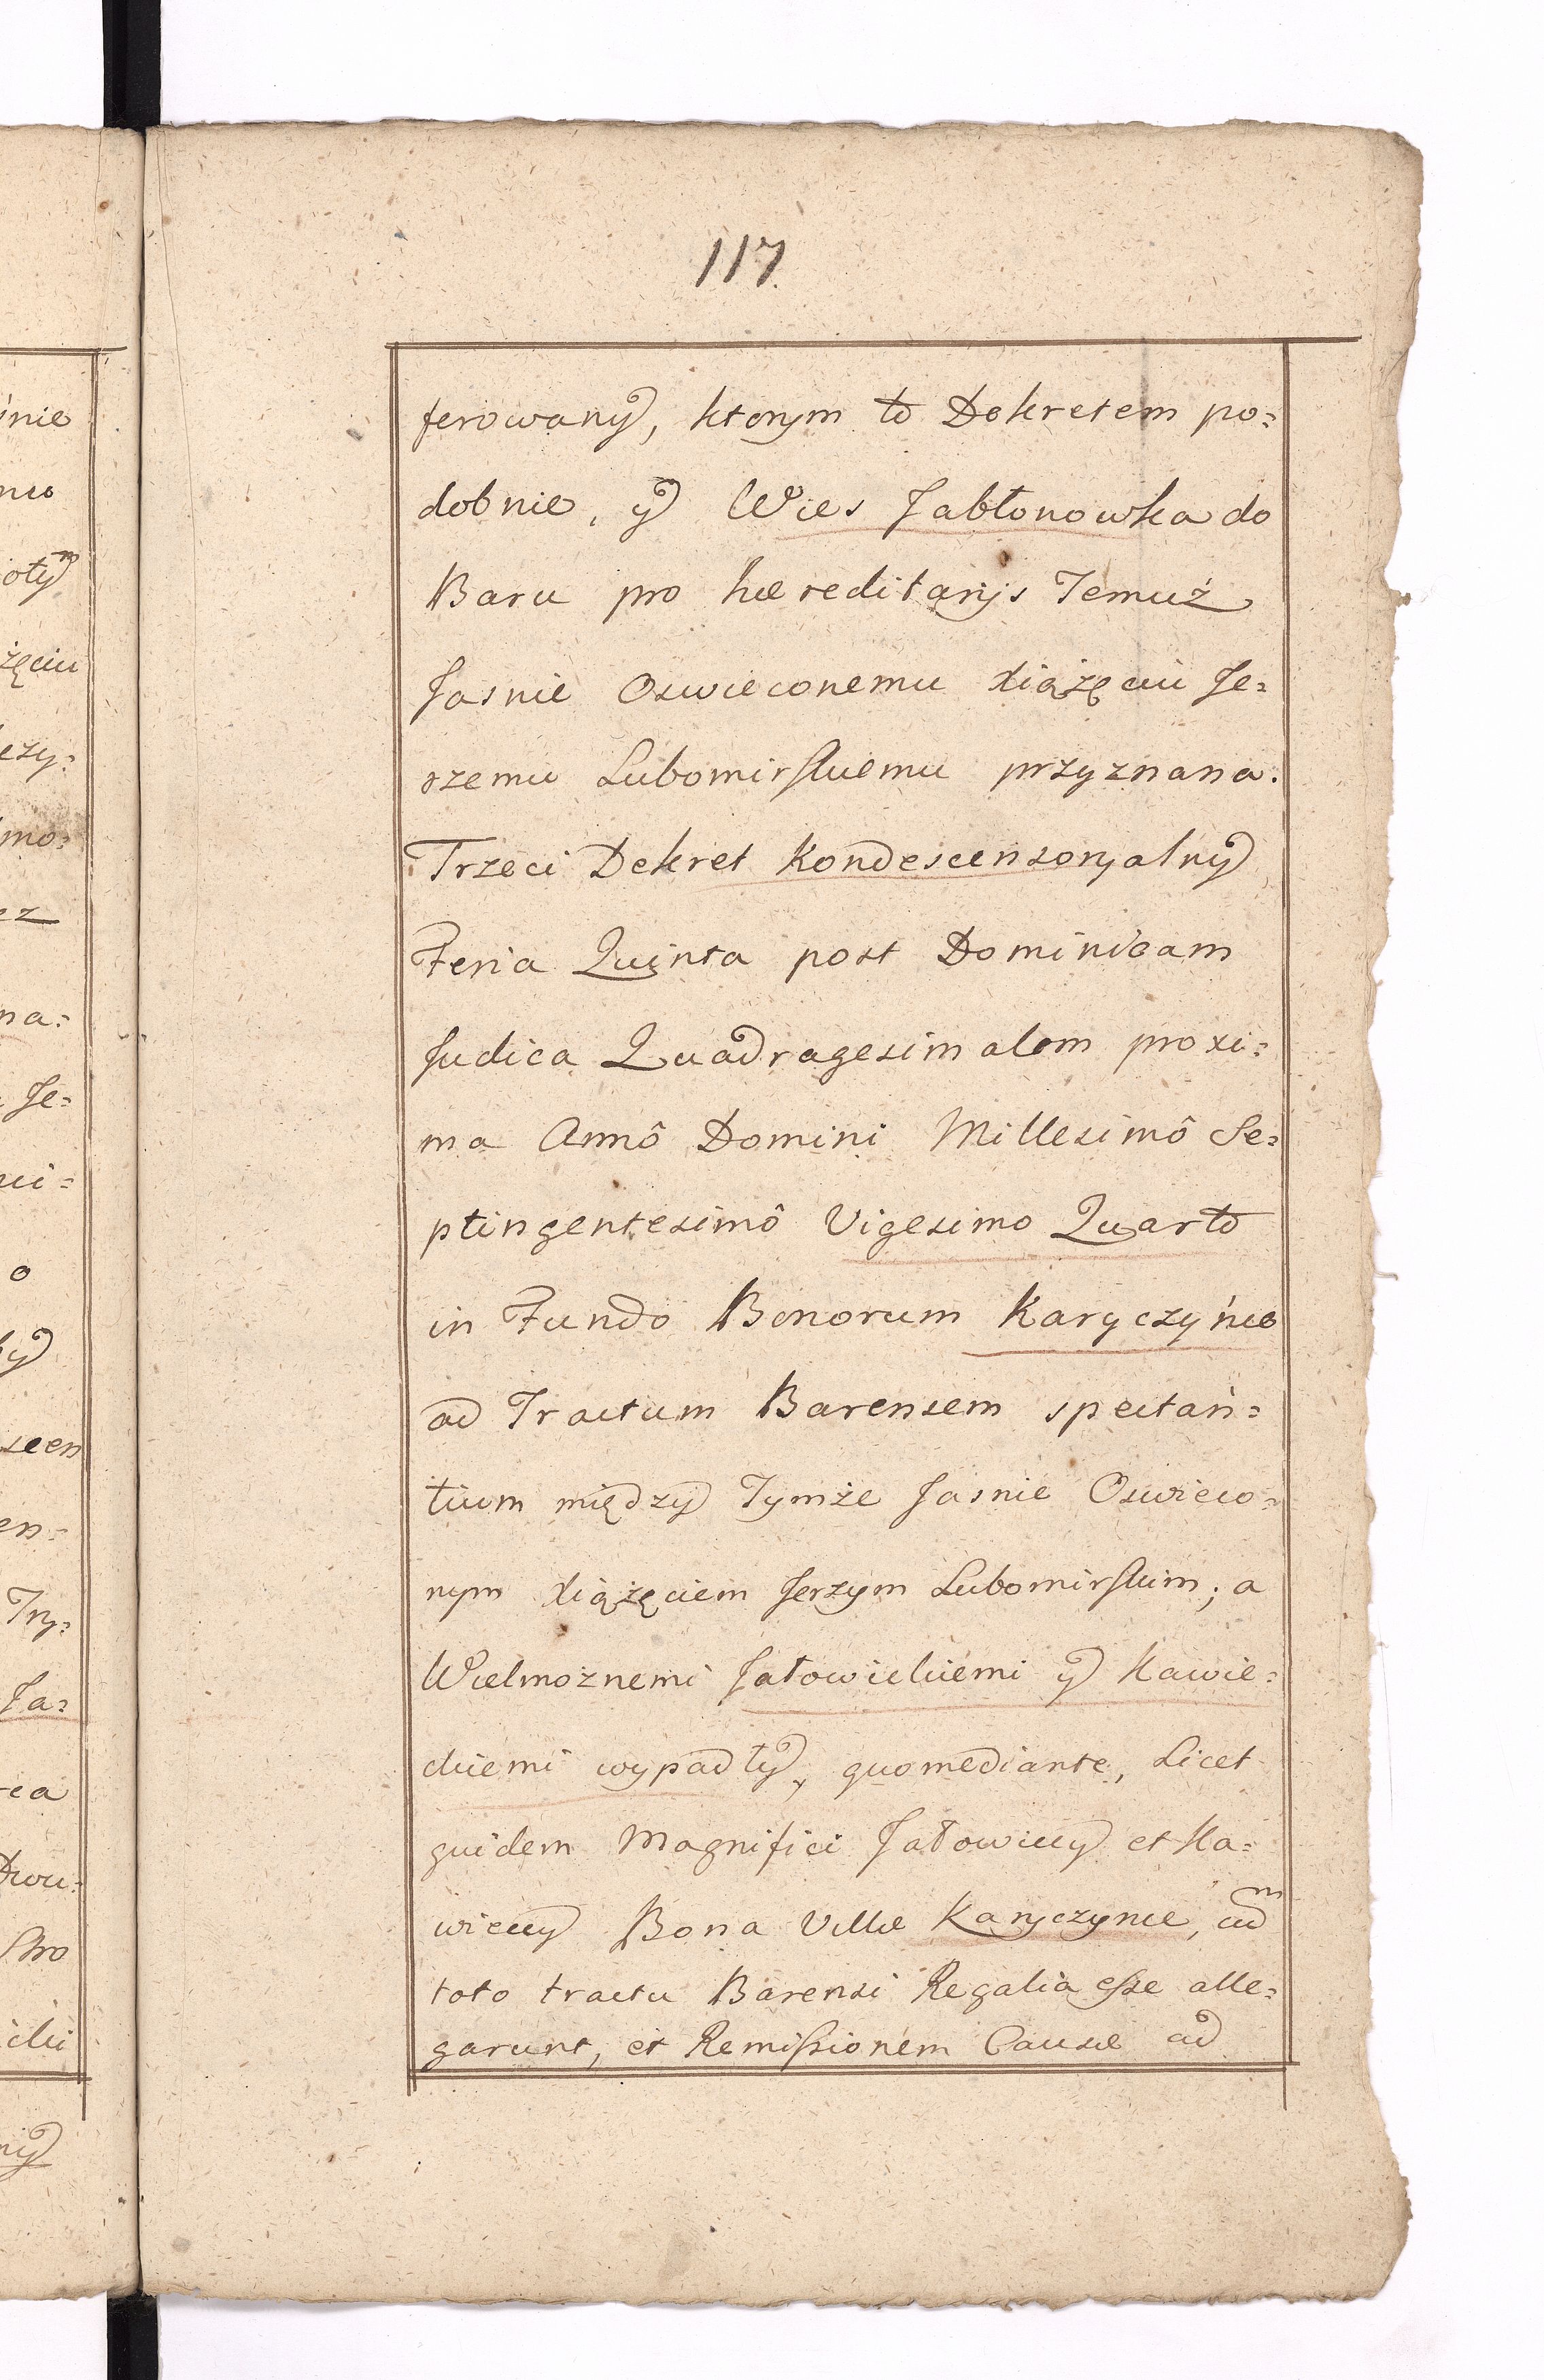 117.
ferowany, ktorym to Dekretem po=
dobnie, y Wies Jabłonowka do
Baru pro hæreditarijs Temuż
Jasnie Oswieconemu Xiążęciu Je=
rzemu Lubomirskiemu przyznana.
Trzeci Dekret Kondescensoryalny
Feria Quinta post Dominicam
Judica Quadragesimalem proxi=
ma Annô Domini Millesimô Se=
ptingentesimô Vigesimo Quarto
in Fundo Bonorum Karyczyńce
ad Tractum Barensem spectan=
tium między Tymże Jasnie Oswieco=
nym Xiążęciem Jerzym Lubomirskim; a
Wielmoznemi Jałowickiemi y Kawie=
ckiemi wypadły, quomediante, Licet
quidem Magnifici Jałowiccy et Ka=
wieccy Bona Villæ Karyczynce, cum
toto tractu Barensi Regalia esse alle=
garunt, et Remissionem Causæ ad
śnie
żęciu
ezy=
mo=
na=
Je=
o
scen
en=
Try=
Ja=